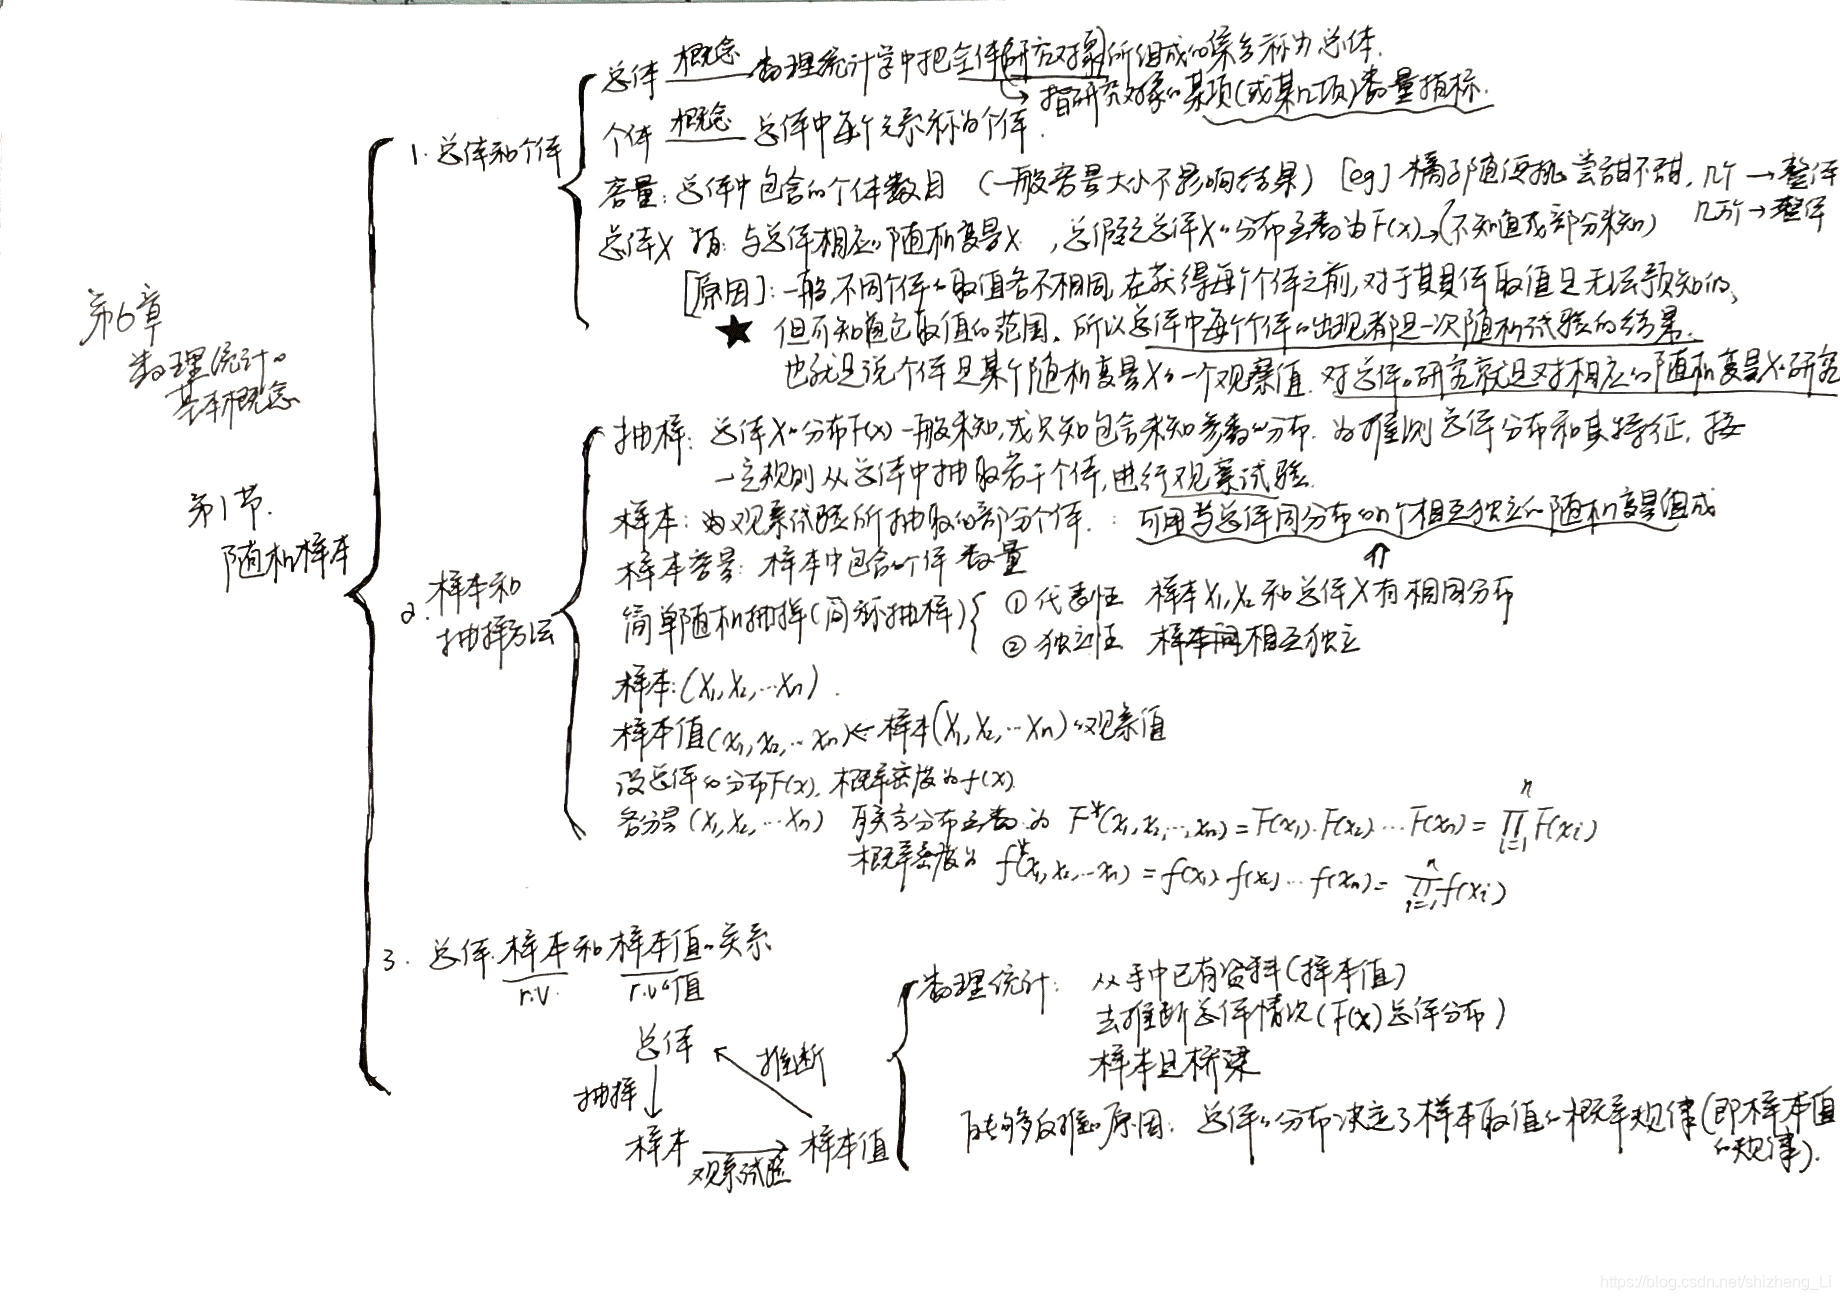 第6章
数理统计的
基本概念
第1节.
随机样本
1. 总体和个体
总体 概念 数理统计学中把全体研究对象所组成的集合称为总体.
指研究对象的某项(或某几项)数量指标.
个体 概念 总体中每个元素称为个体.
容量: 总体中包含的个体数目 (一般容量大小不影响结果) [eg] 橘子随便挑 尝甜不甜, 几个 → 整体
几万个 → 整体
总体X 指: 与总体相应的随机变量X. , 总假定总体X的分布函数为F(x) → (不知道或部分未知)
[原因]: 一般, 不同个体的取值各不相同, 在获得每个个体之前, 对于其具体取值是无法预知的,
★ 但可知道它取值的范围. 所以总体中每个个体的出现都是一次随机试验的结果.
也就是说个体是某个随机变量X的一个观察值. 对总体的研究就是对相应的随机变量X的研究
2. 样本和
抽样方法
抽样: 总体X的分布F(x)一般未知, 或只知包含未知参数的分布. 为推测总体分布和其特征, 按
一定规则从总体中抽取若干个体, 进行观察试验.
样本: 为观察试验所抽取的部分个体. : 可用与总体同分布的n个相互独立的随机变量组成
样本容量: 样本中包含的个体数量
简单随机抽样(简称抽样) ① 代表性 样本X₁,X₂和总体X有相同分布
② 独立性 样本间相互独立
样本: (X₁, X₂, …Xn).
样本值(x₁, x₂, …xn) ← 样本(X₁, X₂, …Xn)的观察值
设总体的分布F(x), 概率密度为f(x).
各分量(X₁, X₂, …Xn) 联合分布函数为 F*(x₁, x₂, …, xn) = F(x₁)·F(x₂)…F(xn) = ∏ⁿᵢ₌₁ F(xi)
概率密度为 f*(x₁, x₂, …xn) = f(x₁)·f(x₂)…f(xn) = ∏ⁿᵢ₌₁ f(xi)
3. 总体.样本和样本值的关系
r.v. r.v的值
总体
推断
抽样
样本 → 样本值
观察试验
数理统计: 从手中已有资料(样本值)
去推断总体情况(F(x)总体分布)
样本是桥梁
能够反推的原因: 总体的分布决定了样本取值的概率规律(即样本值
的规律).
https://blog.csdn.net/shizheng_Li